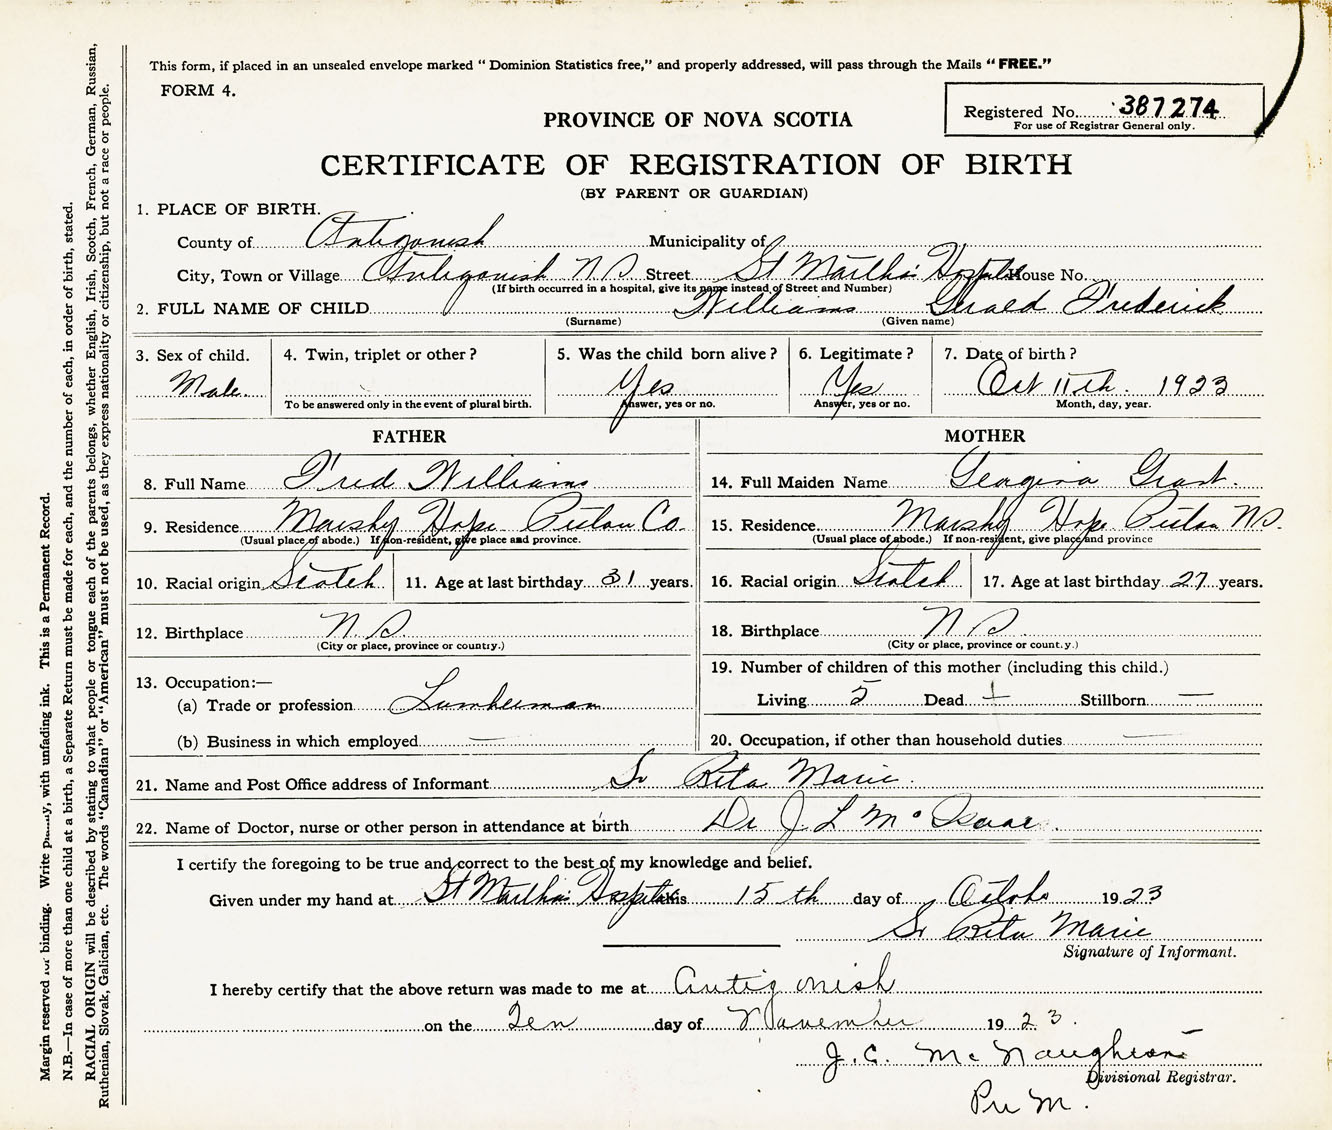 This form, if placed in an unsealed envelope marked “ Dominion Statistics free,” and properly addressed, will pass through the Mails “ FREE.”
FORM 4.
Registered No. 387274
For use of Registrar General only.
PROVINCE OF NOVA SCOTIA
CERTIFICATE OF REGISTRATION OF BIRTH
(BY PARENT OR GUARDIAN)
1. PLACE OF BIRTH.
County of Antigonish Municipality of
City, Town or Village Antigonish N S Street St Martha's Hospital House No.
(If birth occurred in a hospital, give its name instead of Street and Number)
2. FULL NAME OF CHILD Williams Gerald Frederick
(Surname) (Given name)
3. Sex of child. 4. Twin, triplet or other? 5. Was the child born alive? 6. Legitimate? 7. Date of birth?
Male. Yes Yes Oct 11th. 1923
To be answered only in the event of plural birth. Answer, yes or no. Answer, yes or no. Month, day, year.
FATHER MOTHER
8. Full Name Fred Williams 14. Full Maiden Name Georgina Grant.
9. Residence Marshy Hope Pictou Co. 15. Residence Marshy Hope Pictou N S.
(Usual place of abode.) If non-resident, give place and province. (Usual place of abode.) If non-resident, give place and province
10. Racial origin Scotch 11. Age at last birthday 31 years. 16. Racial origin Scotch 17. Age at last birthday 27 years.
12. Birthplace N. S. 18. Birthplace N S
(City or place, province or country.) (City or place, province or count.y.)
19. Number of children of this mother (including this child.)
13. Occupation:—
(a) Trade or profession Lumberman Living 5 Dead Stillborn —
(b) Business in which employed — 20. Occupation, if other than household duties —
21. Name and Post Office address of Informant Sr Rita Marie.
22. Name of Doctor, nurse or other person in attendance at birth Dr J L McIsaac.
I certify the foregoing to be true and correct to the best of my knowledge and belief.
Given under my hand at St Martha's Hospital this 15th day of October 1923
Sr Rita Marie
Signature of Informant.
I hereby certify that the above return was made to me at Antigonish
on the Ten day of November 1923.
J. C. McNaughton
Divisional Registrar.
Margin reserved for binding. Write plainly, with unfading ink. This is a Permanent Record.
N.B.—In case of more than one child at a birth, a Separate Return must be made for each, and the number of each, in order of birth, stated.
RACIAL ORIGIN will be described by stating to what people or tongue each of the parents belongs, whether English, Irish, Scotch, French, German, Russian,
Ruthenian, Slovak, Galician, etc. The words “Canadian” or “American” must not be used, as they express nationality or citizenship, but not a race or people.